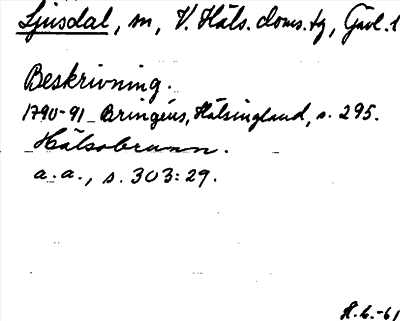 Ljusdal, sn, V. Häls. doms. tg, Gävl. l
Beskrivning.
1790-91 Bringéus, Hälsingland, s. 295.
Hälsobrunn.
a. a., s. 303:29.
H. G. -61